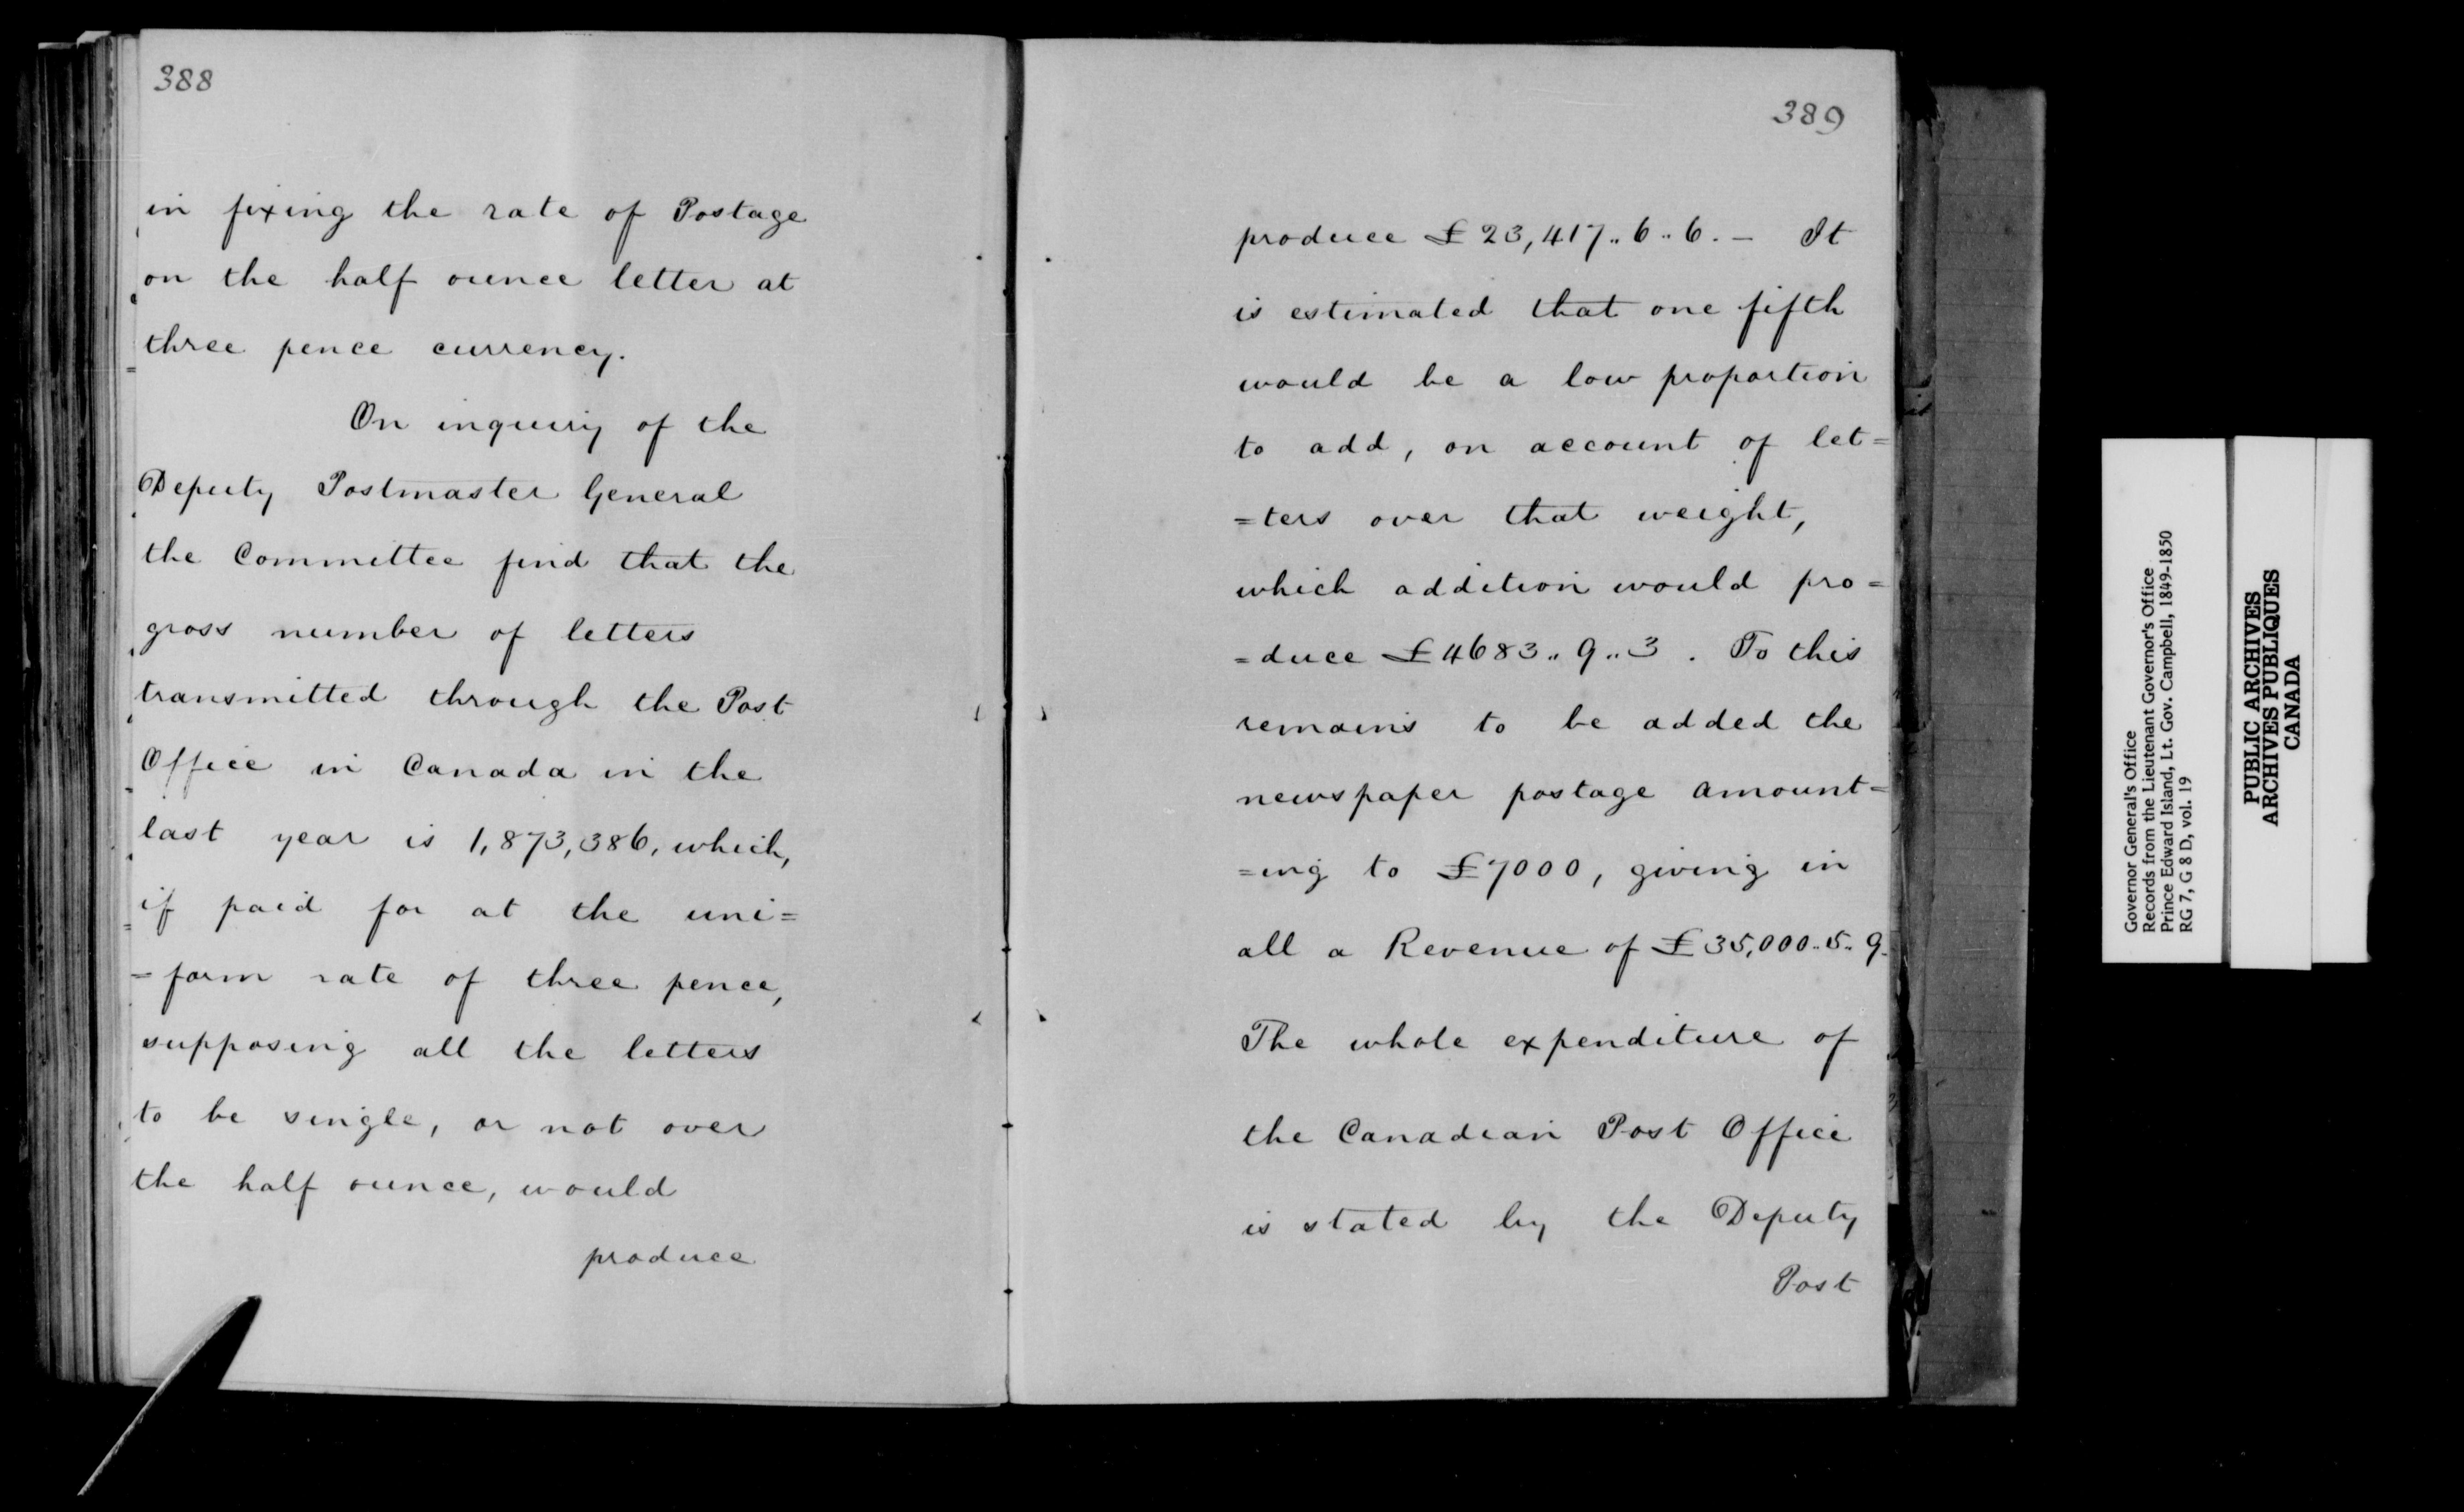 388
in fixing the rate of Postage
on the half ounce letter at
three pence currency.
On inquiry of the
Deputy Postmaster General
the Committee find that the
gross number of letters
transmitted through the Post
Office in Canada in the
last year is 1,873,386, which,
if paid for at the uni=
=form rate of three pence,
supposing all the letters
to be single, or not over
the half ounce, would
produce
389
produce £23,417..6..6. – It
is estimated that one fifth
would be a low proportion
to add, on account of let=
=ters over that weight,
which addition would pro=
=duce £4683..9..3. To this
remains to be added the
newspaper postage amount=
=ing to £7000, giving in
all a Revenue of £35,000..5..9.
The whole expenditure of
the Canadian Post Office
is stated by the Deputy
Post
Governor General's Office
Records from the Lieutenant Governor's Office
Prince Edward Island, Lt. Gov. Campbell, 1849-1850
RG 7, G 8 D, vol. 19
PUBLIC ARCHIVES
ARCHIVES PUBLIQUES
CANADA